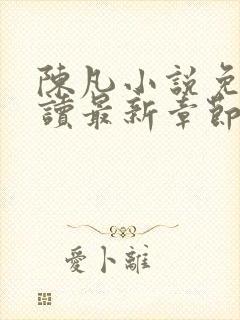 陳凡小說免
讀最新章節
愛卜離